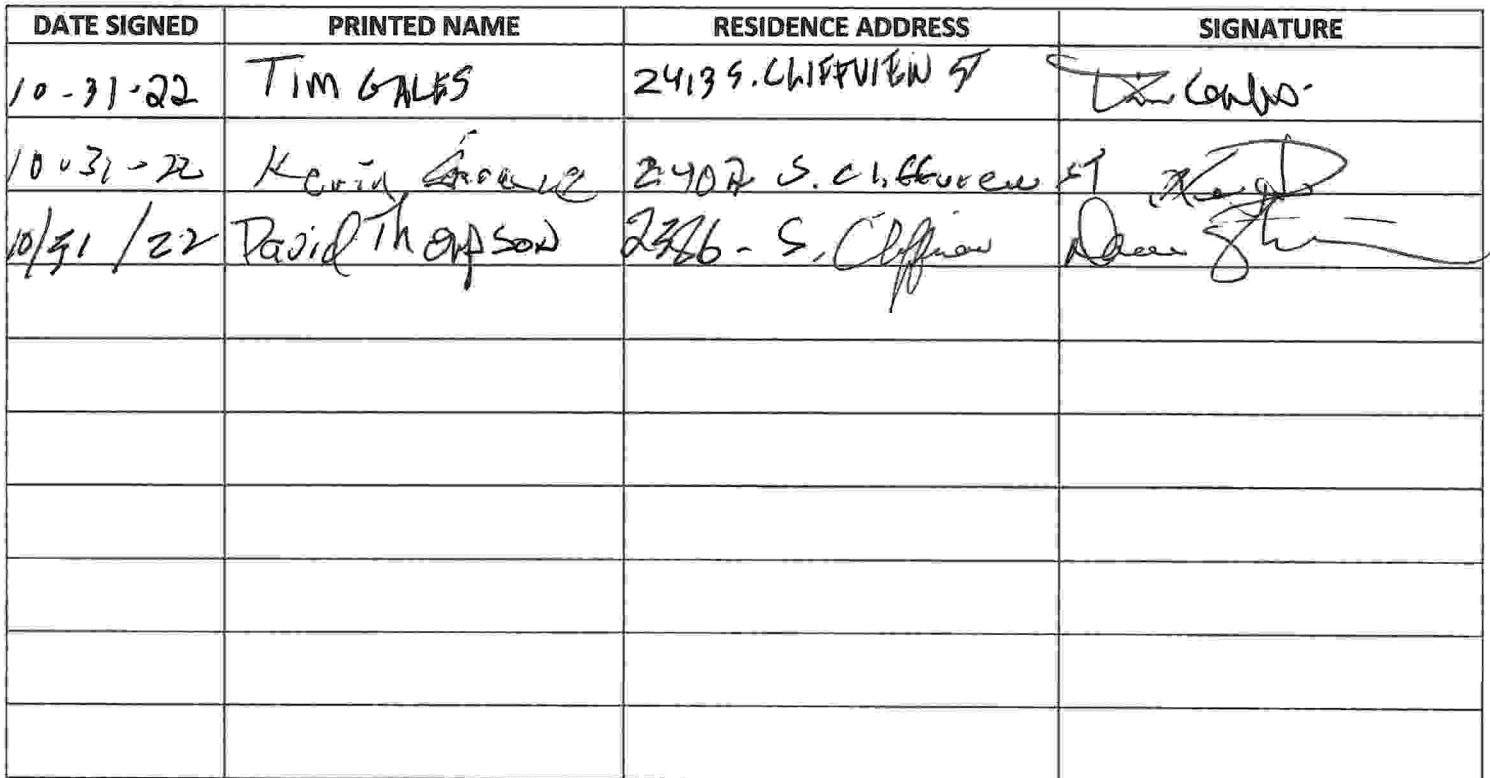 DATE SIGNED PRINTED NAME RESIDENCE ADDRESS SIGNATURE
10-31-22 TIM GALES 2413 S. CLIFFVIEW ST Tim
10-31-22 Kevin 2402 S. Cliffview ST
10/31/22 David Thompson - S. Cliffview